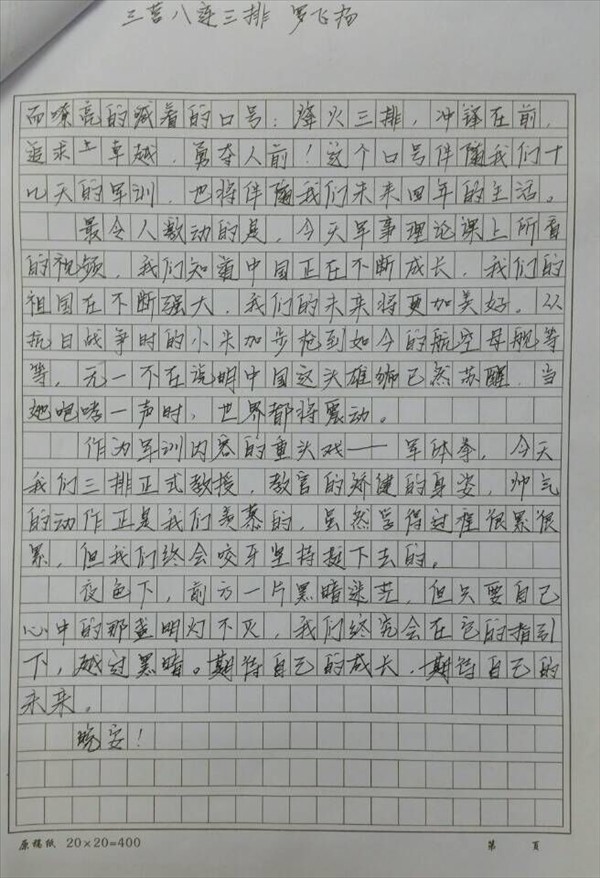 三营八连三排 罗飞扬
而嘹亮的喊着的口号：烽火三排，冲锋在前，
追求上卓越，勇夺人前！这个口号伴随我们十
几天的军训，也将伴随我们未来四年的生活。
最令人激动的是，今天军事理论课上所看
的视频，我们知道中国正在不断成长，我们的
祖国在不断强大，我们的未来将更加美好。从
抗日战争时的小米加步枪到如今的航空母舰等
等，无一不在说明中国这头雄狮已然苏醒，当
她咆哮一声时，世界都将震动。
作为军训内容的重头戏——军体拳，今天
我们三排正式教授，教官的矫健的身姿，帅气
的动作正是我们羡慕的，虽然学得过程很累很
累，但我们终会咬牙坚持挺下去的。
夜色下，前方一片黑暗迷茫，但只要自己
心中的那盏明灯不灭，我们终究会在它的指引
下，越过黑暗。期待自己的成长，期待自己的
未来。
晚安！
原稿纸 20×20=400 第 页